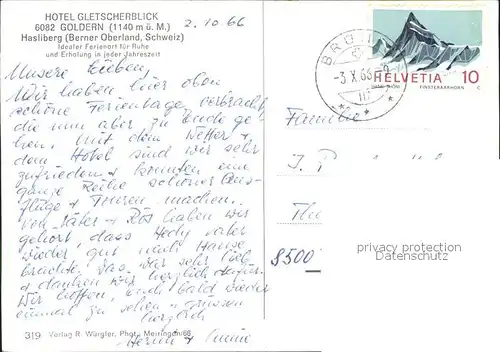 HOTEL GLETSCHERBLICK
6082 GOLDERN (1140 m ü. M.)
Hasliberg (Berner Oberland, Schweiz)
Idealer Ferienort für Ruhe
und Erholung in jeder Jahreszeit
2.10.66
Unsere Lieben,
Wir haben hier oben
schöne Ferientage verbracht
die nun aber zu Ende ge-
hen. Mit dem Wetter +
dem Hotel sind wir sehr
zufrieden + konnten eine
ganze Reihe schöner Aus-
flüge + Touren machen.
Von Väter + Rös haben wir
gehört, dass Hedy Vater
wieder gut nach Hause
brachte. Das war sehr lieb
+ danken wir herzlich dafür.
Wir hoffen, Euch bald wieder
einmal zu sehen + grüssen
herzlich
319 Verlag R. Würgler, Phot., Meiringen/66
BRÜ
-3.X.66
HELVETIA 10
FINSTERAARHORN
Familie
J.
Thu
8500
privacy protection
Datenschutz